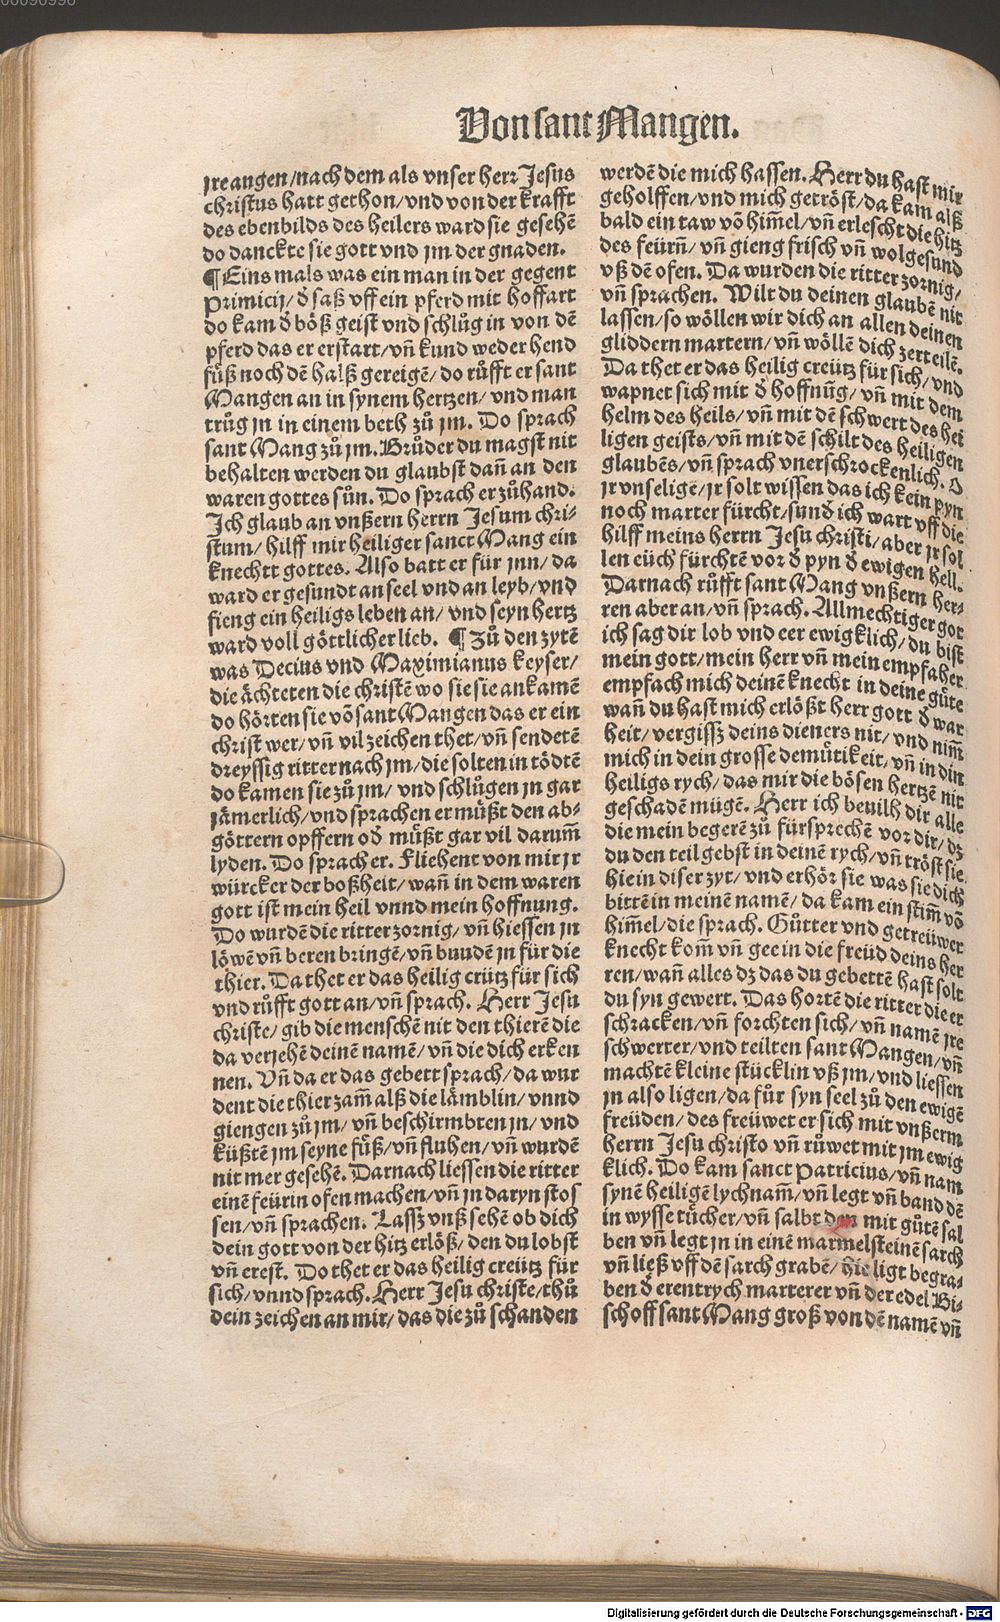 00090996
Von sant Mangen.
jre augen/nach dem als vnser herr Jesus
christus hatt gethon/vnd von der krafft
des ebenbilds des heilers ward sie gesehē
do danckte sie gott vnd jm der gnaden.
¶ Eins mals was ein man in der gegent
Primicij/ d̄ saß vff ein pferd mit hoffart
do kam d̄ böß geist vnd schlůg in von dē
pferd das er erstart/vn̄ kund weder hend
fůß noch dē halß gereigē/do růfft er sant
Mangen an in synem hertzen/ vnd man
trůg jn in einem beth zů jm. Do sprach
sant Mang zů jm. Brůder du magst nit
behalten werden du glaubst dan̄ an den
waren gottes sůn. Do sprach er zůhand.
Ich glaub an vnßern herrn Jesum chri-
stum/ hilff mir heiliger sanct Mang ein
knechtt gottes. Also batt er für jnn/ da
ward er gesundt an seel vnd an leyb/vnd
fieng ein heiligs leben an/ vnd seyn hertz
ward voll göttlicher lieb. ¶ Zů den zytē
was Decius vnd Maximianus keyser/
die ächteten die christē wo sie sie ankamē
do hörten sie vō sant Mangen das er ein
christ wer/ vn̄ vil zeichen thet/vn̄ sendetē
dreyssig ritter nach jm/die solten in tödtē
do kamen sie zů jm/ vnd schlůgen jn gar
jämerlich/vnd sprachen er müßt den ab-
göttern opffern od̄ müßt gar vil darum̄
lyden. Do sprach er. Fliehent von mir jr
würcker der boßheit/ wan̄ in dem waren
gott ist mein heil vnnd mein hoffnung.
Do wurdē die ritter zornig/ vn̄ hiessen jn
löwē vn̄ beren bringē/vn̄ buudē jn für die
thier. Da thet er das heilig crütz für sich
vnd růfft gott an/vn̄ sprach. Herr Jesu
christe/gib die menschē nit den thierē die
da verjehē deinē namē/ vn̄ die dich erken
nen. Vn̄ da er das gebett sprach/da wur
dent die thier zam̄ alß die lämblin/ vnnd
giengen zů jm/ vn̄ beschirmbten jn/ vnd
küßtē jm seyne füß/vn̄ fluhen/vn̄ wurdē
nit mer gesehē. Darnach liessen die ritter
einē feürin ofen machen/vn̄ jn daryn stos
sen/vn̄ sprachen. Lassz vnß sehē ob dich
dein gott von der hitz erlöß/den du lobst
vn̄ erest. Do thet er das heilig creütz für
sich/vnnd sprach. Herr Jesu christe/thů
dein zeichen an mir/das die zů schanden
werdē die mich hassen. Herr du hast mir
geholffen/vnd mich getröst/da kam alß
bald ein taw vō him̄el/ vn̄ erlescht die hitz
des feürn̄/ vn̄ gieng frisch vn̄ wolgesund
vß dē ofen. Da wurden die ritter zornig/
vn̄ sprachen. Wilt du deinen glaubē nit
lassen/so wöllen wir dich an allen deinen
gliddern martern/vn̄ wöllē dich zerteilē.
Da thet er das heilig creütz für sich/vnd
wapnet sich mit d̄ hoffnūg/ vn̄ mit dem
helm des heils/ vn̄ mit dē schwert des hei
ligen geists/vn̄ mit dē schilt des heiligen
glaubēs/vn̄ sprach vnerschrockenlich. O
jr vnseligē/jr solt wissen das ich kein pyn
noch marter fürcht/sund̄ ich wart vff die
hilff meins herrn Jesu christi/ aber jr sol
len eüch fürchtē vor d̄ pyn d̄ ewigen hell.
Darnach růfft sant Mang vnßern her-
ren aber an/vn̄ sprach. Allmechtiger got
ich sag dir lob vnd eer ewigklich/du bist
mein gott/mein herr vn̄ mein empfaher
empfach mich deinē knecht in deine güte
wan̄ du hast mich erlößt herr gott d̄ war
heit/ vergissz deins dieners nit/ vnd nim̄
mich in dein grosse demütikeit/vn̄ in din
heiligs rych/das mir die bösen hertzē nit
geschadē mügē. Herr ich beuilh dir alle
die mein begerē zů fürsprechē vor dir/dz
du den teil gebst in deinē rych/vn̄ tröst sie
hie in diser zyt/ vnd erhör sie was sie dich
bittē in meinē namē/da kam ein stim̄ vō
him̄el/die sprach. Gůtter vnd getreüwer
knecht kom̄ vn̄ gee in die freüd deins her
ren/wan̄ alles dz das du gebettē hast solt
du syn gewert. Das hortē die ritter die er
schracken/vn̄ forchten sich/vn̄ namē jre
schwerter/vnd teilten sant Mangen/vn̄
machtē kleine stücklin vß jm/vnd liessen
jn also ligen/da fůr syn seel zů den ewigē
freüden/des freüwet er sich mit vnßerm
herrn Jesu christo vn̄ růwet mit jm ewig
klich. Do kam sanct Patricius/vn̄ nam
synē heiligē lychnam̄/vn̄ legt vn̄ band dē
in wysse tücher/vn̄ salbt den mit gůtē sal
ben vn̄ legt jn in einē marmelsteinē sarch
vn̄ ließ vff dē sarch grabē/ hie ligt begra-
ben d̄ erentrych marterer vn̄ der edel Bi-
schoff sant Mang groß von dē namē vn̄
Digitalisierung gefördert durch die Deutsche Forschungsgemeinschaft - DFG